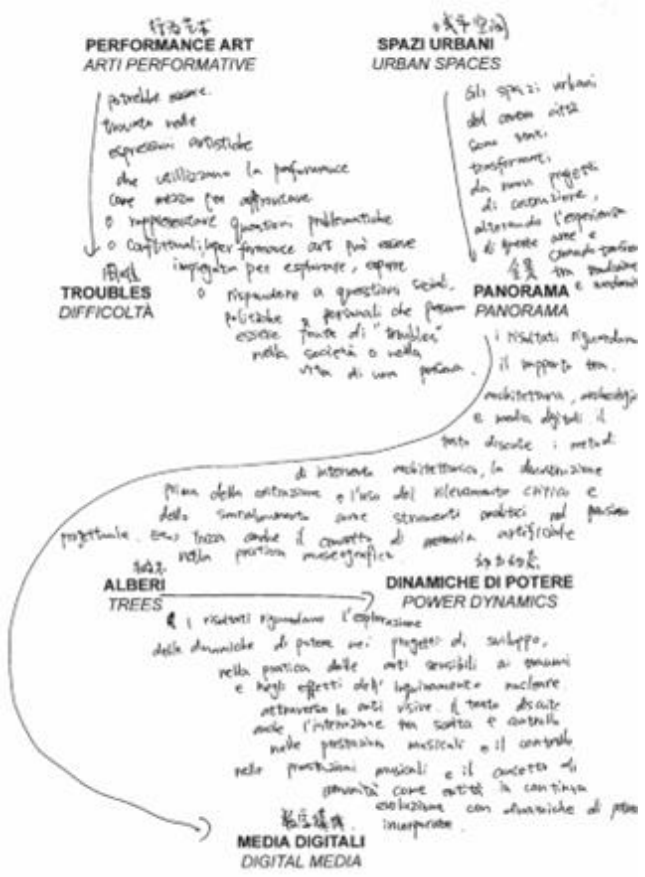 行为艺术
PERFORMANCE ART
ARTI PERFORMATIVE
potrebbe essere
trovata nelle
espressioni artistiche
che utilizzano la performance
come mezzo per affrontare
o rappresentare questioni problematiche
o conflittuali; la performance art può essere
impiegata per esplorare, esporre
o rispondere a questioni sociali,
politiche o personali che possono
essere fonte di "troubles"
nella società o nella
vita di una persona.
困难
TROUBLES
DIFFICOLTÀ
城市空间
SPAZI URBANI
URBAN SPACES
Gli spazi urbani
del città
sono stati
trasformati
da nuovi progetti
di costruzione,
alterando l'esperienza
di queste aree e
tra tradizione
e
全景
PANORAMA
PANORAMA
i risultati riguardano
il rapporto tra
architettura,
e media digitali il
testo discute i metodi
di intervento architettonico, la decostruzione
prima della costruzione e l'uso del rilevamento critico e
dello come strumenti analitici nel
progettuale. anche il concetto di memoria artificiale
nella pratica museografica
ALBERI
TREES
DINAMICHE DI POTERE
POWER DYNAMICS
i risultati riguardano l'esplorazione
delle dinamiche di potere nei progetti di sviluppo,
nella pratica delle arti sensibili ai traumi
e negli effetti dell'inquinamento nucleare
attraverso le arti visive. il testo discute
anche l'interazione tra scelta e controllo
nelle prestazioni musicali e il controllo
nelle prestazioni musicali e il concetto di
comunità come entità in continua
evoluzione con dinamiche di potere
incorporate.
数字媒体
MEDIA DIGITALI
DIGITAL MEDIA